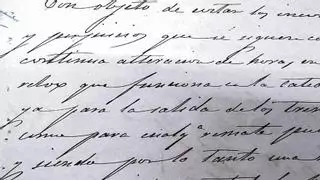 Con objeto de evitar los incon
y perjuicios que se siguen co
continua alteracion de hora, en
relox que funciona en la cate
ya para la salida de los tren
como para cualq.ª remate que
y siendo por lo tanto una